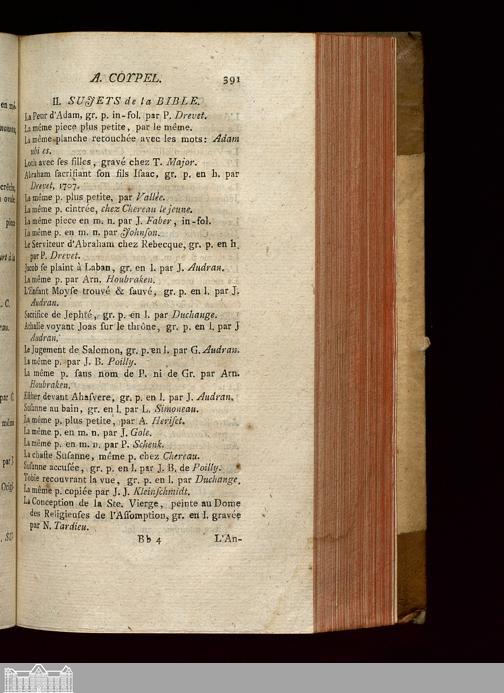 A. COYPEL. 391
II. SUJETS de la BIBLE.
La Peur d'Adam, gr. p. in-fol. par P. Drevet.
La même piece plus petite, par le même.
La même planche retouchée avec les mots: Adam
ubi es.
Loth avec ses filles, gravé chez T. Major.
Abraham sacrifiant son fils Isaac, gr. p. en h. par
Drevet, 1707.
La même p. plus petite, par Vallée.
La même p. cintrée, chez Chereau le jeune.
La même piece en m. n. par J. Faber, in-fol.
La même p. en m. n. par Johnson.
Le Serviteur d'Abraham chez Rebecque, gr. p. en h.
par P. Drevet.
Jacob se plaint à Laban, gr. en l. par J. Audran.
La même p. par Arn. Houbraken.
L'Enfant Moyse trouvé & sauvé, gr. p. en l. par J.
Audran.
Sacrifice de Jephté, gr. p. en l. par Duchange.
Athalie voyant Joas sur le thrône, gr. p. en l. par J
Audran.
Le Jugement de Salomon, gr. p. en l. par G. Audran.
La même p. par J. B. Poilly.
La même p. sans nom de P. ni de Gr. par Arn.
Houbraken.
Esther devant Ahasvere, gr. p. en l. par J. Audran.
Susanne au bain, gr. en l. par L. Simoneau.
La même p. plus petite, par A. Heriset.
La même p. en m. n. par J. Gole.
La même p. en m. n. par P. Schenk.
La chaste Susanne, même p. chez Chereau.
Susanne accusée, gr. p. en l. par J. B. de Poilly.
Tobie recouvrant la vue, gr. p. en l. par Duchange.
La même p. copiée par J. J. Kleinschmidt.
La Conception de la Ste. Vierge, peinte au Dome
des Religieuses de l'Assomption, gr. en l. gravée
par N. Tardieu.
Bb 4 L'An-